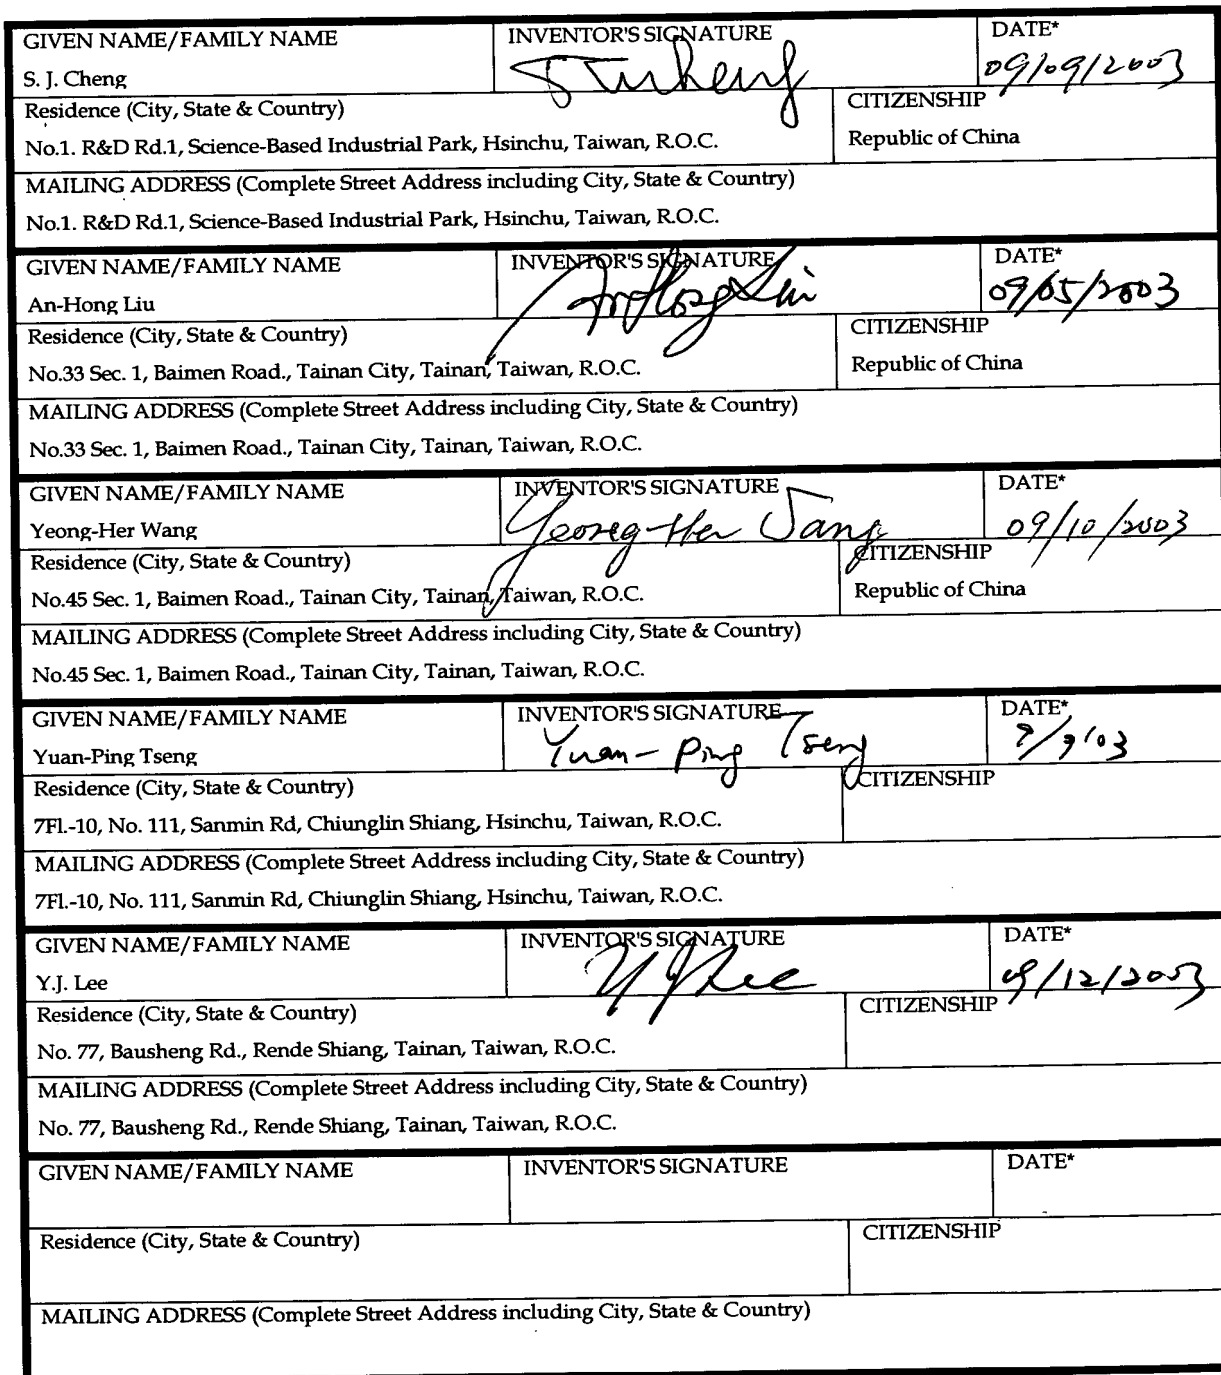 GIVEN NAME/FAMILY NAME INVENTOR'S SIGNATURE DATE*
S. J. Cheng 09/09/2003
Residence (City, State & Country) CITIZENSHIP
No.1. R&D Rd.1, Science-Based Industrial Park, Hsinchu, Taiwan, R.O.C. Republic of China
MAILING ADDRESS (Complete Street Address including City, State & Country)
No.1. R&D Rd.1, Science-Based Industrial Park, Hsinchu, Taiwan, R.O.C.
GIVEN NAME/FAMILY NAME INVENTOR'S SIGNATURE DATE*
An-Hong Liu AnHong Liu 09/05/2003
Residence (City, State & Country) CITIZENSHIP
No.33 Sec. 1, Baimen Road., Tainan City, Tainan, Taiwan, R.O.C. Republic of China
MAILING ADDRESS (Complete Street Address including City, State & Country)
No.33 Sec. 1, Baimen Road., Tainan City, Tainan, Taiwan, R.O.C.
GIVEN NAME/FAMILY NAME INVENTOR'S SIGNATURE DATE*
Yeong-Her Wang Yeong-Her Wang 09/10/2003
Residence (City, State & Country) CITIZENSHIP
No.45 Sec. 1, Baimen Road., Tainan City, Tainan, Taiwan, R.O.C. Republic of China
MAILING ADDRESS (Complete Street Address including City, State & Country)
No.45 Sec. 1, Baimen Road., Tainan City, Tainan, Taiwan, R.O.C.
GIVEN NAME/FAMILY NAME INVENTOR'S SIGNATURE DATE*
Yuan-Ping Tseng Yuan-Ping Tseng
Residence (City, State & Country) CITIZENSHIP
7Fl.-10, No. 111, Sanmin Rd, Chiunglin Shiang, Hsinchu, Taiwan, R.O.C.
MAILING ADDRESS (Complete Street Address including City, State & Country)
7Fl.-10, No. 111, Sanmin Rd, Chiunglin Shiang, Hsinchu, Taiwan, R.O.C.
GIVEN NAME/FAMILY NAME INVENTOR'S SIGNATURE DATE*
Y.J. Lee Y J Lee 09/12/2003
Residence (City, State & Country) CITIZENSHIP
No. 77, Bausheng Rd., Rende Shiang, Tainan, Taiwan, R.O.C.
MAILING ADDRESS (Complete Street Address including City, State & Country)
No. 77, Bausheng Rd., Rende Shiang, Tainan, Taiwan, R.O.C.
GIVEN NAME/FAMILY NAME INVENTOR'S SIGNATURE DATE*
Residence (City, State & Country) CITIZENSHIP
MAILING ADDRESS (Complete Street Address including City, State & Country)